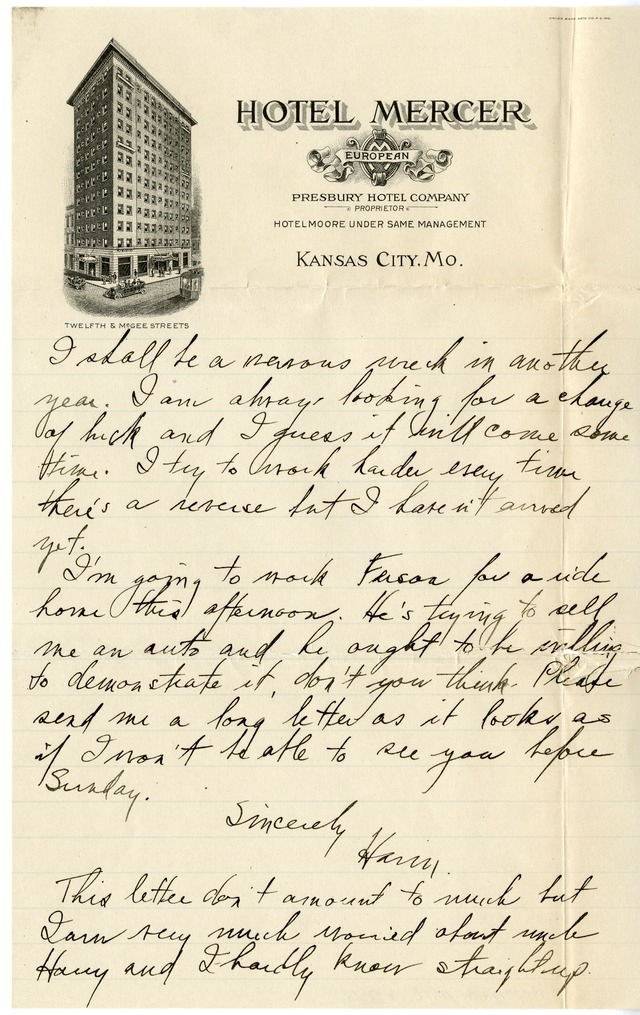 HOTEL MERCER
EUROPEAN
PRESBURY HOTEL COMPANY
PROPRIETOR
HOTEL MOORE UNDER SAME MANAGEMENT
KANSAS CITY, MO.
TWELFTH & McGEE STREETS
I shall be a nervous wreck in another
year. I am always looking for a change
of luck and I guess it will come some
time. I try to work harder every time
there's a reverse but I haven't arrived
yet.
I'm going to work Ferson for a ride
home this afternoon. He's trying to sell
me an auto and he ought to be willing
to demonstrate it, don't you think. Please
send me a long letter as it looks as
if I won't be able to see you before
Sunday.
Sincerely
Harry.
This letter don't amount to much but
I am very much worried about uncle
Harry and I hardly know straight up.